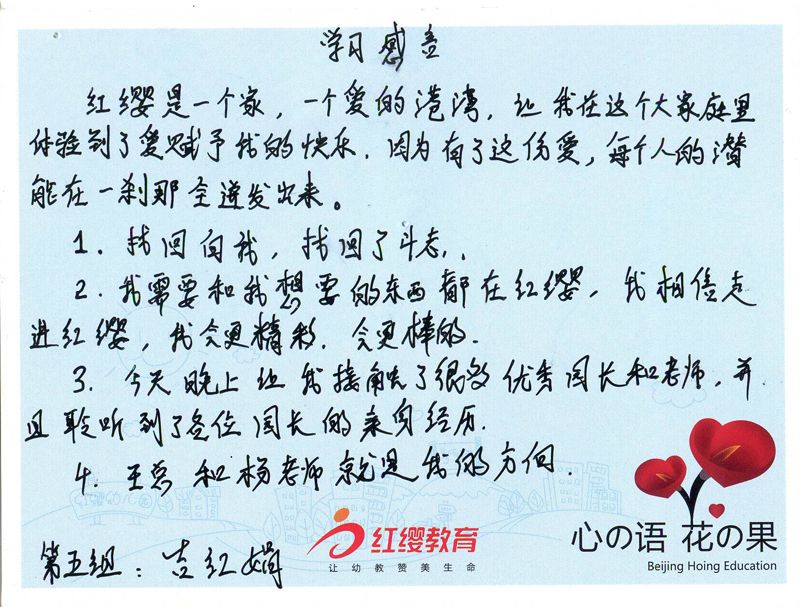 学习感言
红缨是一个家，一个爱的港湾，让我在这个大家庭里
体验到了爱赋予我的快乐．因为有了这份爱，每个人的潜
能在一刹那全迸发出来。
1．找回自我，找回了斗志．
2．我需要和我想要的东西都在红缨，我相信走
进红缨，我会更精彩．会更棒的．
3．今天晚上让我接触了很多优秀园长和老师，并
且聆听到了各位园长的亲身经历．
4．王总和杨老师就是我的方向．
第五组：吉红娟
红缨教育
让幼教赞美生命
心の语 花の果
Beijing Hoing Education